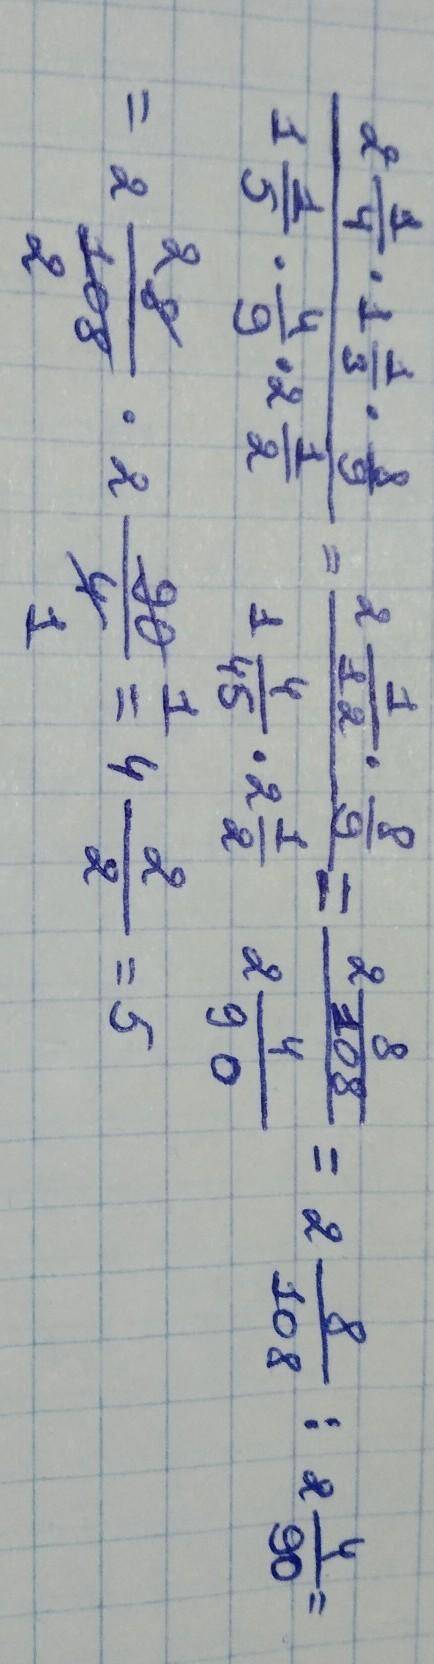 (2 1/4 · 1 1/3 · 8/9) / (1 1/5 · 4/9 · 2 1/2) = (2 1/12 · 8/9) / (1 4/45 · 2 1/2) = (2 8/108) / (2 4/90) = 2 8/108 : 2 4/90 =
2 1
= 2 8/108 · 2 90/4 = 4 2/2 = 5
2 1